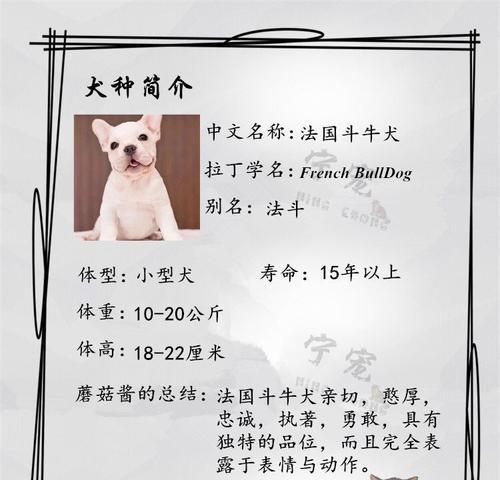 犬种简介
中文名称:法国斗牛犬
拉丁学名:French BullDog
别名: 法斗
宁宠
体型:小型犬
寿命: 15年以上
体重:10-20公斤
体高:18-22厘米
宁宠
蘑菇酱的总结:法国斗牛犬亲切, 憨厚,
忠诚, 执著, 勇敢, 具有
独特的品位, 而且完全表
露于表情与动作。